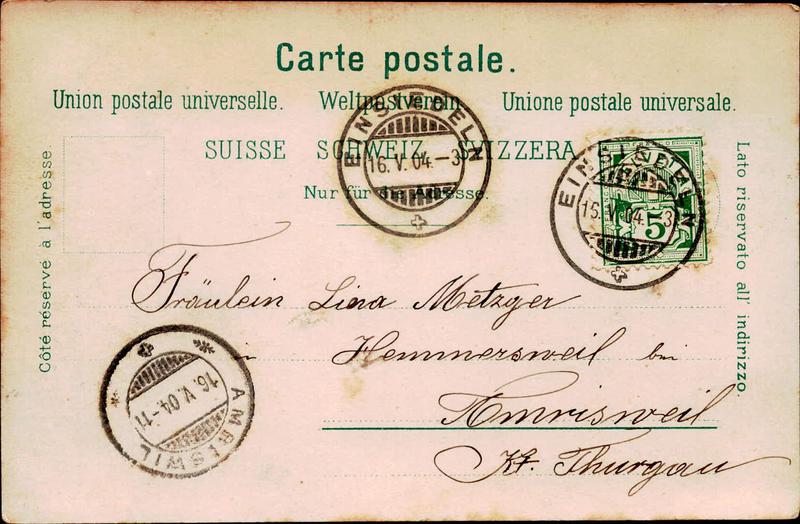 Carte postale.
Union postale universelle. Weltpostverein Unione postale universale.
SUISSE SCHWEIZ SVIZZERA
Nur für die Adresse.
Côté réservé à l'adresse.
Lato riservato all' indirizzo.
EINSIEDELN
16. V. 04. - 3
EINSIEDELN
16. V. 04. - 3
5
Fräulein Lina Metzger
in Hemmersweil bei
Amrisweil
Kt. Thurgau
AMRISWIL
16. V. 04 - 11